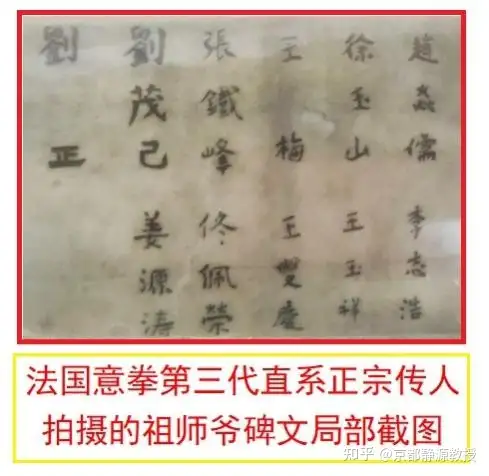 趙 儒 李志浩
徐玉山 王玉祥
王 梅 王雙慶
張鐵峰 佟佩榮
劉茂己 姜源濤
劉 正
法国意拳第三代直系正宗传人
拍摄的祖师爷碑文局部截图
知乎 @京都静源教授